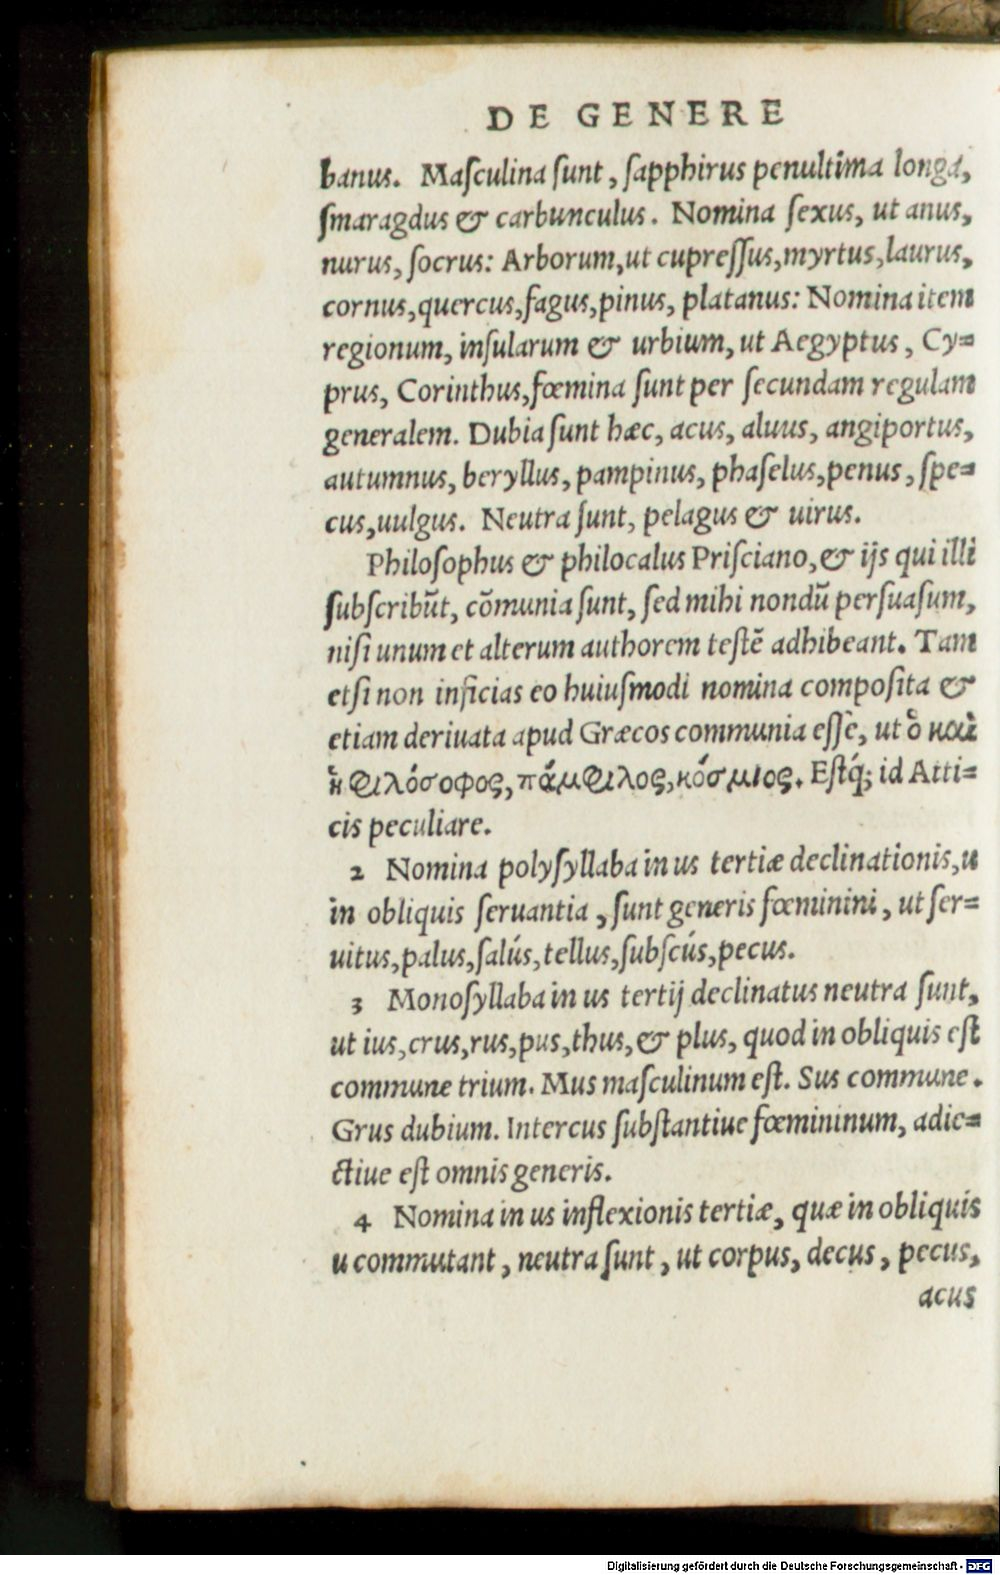 DE GENERE
banus. Maſculina ſunt, ſapphirus penultima longa,
ſmaragdus & carbunculus. Nomina ſexus, ut anus,
nurus, ſocrus: Arborum, ut cupreſſus, myrtus, laurus,
cornus, quercus, fagus, pinus, platanus: Nomina item
regionum, inſularum & urbium, ut Aegyptus, Cy=
prus, Corinthus, fœmina ſunt per ſecundam regulam
generalem. Dubia ſunt hæc, acus, aluus, angiportus,
autumnus, beryllus, pampinus, phaſelus, penus, ſpe=
cus, uulgus. Neutra ſunt, pelagus & uirus.
Philoſophus & philocalus Priſciano, & ijs qui illi
ſubſcribūt, cōmunia ſunt, ſed mihi nondū perſuaſum,
niſi unum et alterum authorem teſtē adhibeant. Tam
etſi non inficias eo huiuſmodi nomina compoſita &
etiam deriuata apud Græcos communia eſſe, ut ὁ καὶ
ἡ φιλόσοφος, πάμφιλος, κόσμιος. Eſtq́; id Atti=
cis peculiare.
2 Nomina polyſyllaba in us tertiæ declinationis, u
in obliquis ſeruantia, ſunt generis fœminini, ut ſer=
uitus, palus, ſalús, tellus, ſubſcús, pecus.
3 Monoſyllaba in us tertij declinatus neutra ſunt,
ut ius, crus, rus, pus, thus, & plus, quod in obliquis eſt
commune trium. Mus maſculinum eſt. Sus commune.
Grus dubium. Intercus ſubſtantiue fœmininum, adie=
ctiue eſt omnis generis.
4 Nomina in us inflexionis tertiæ, quæ in obliquis
u commutant, neutra ſunt, ut corpus, decus, pecus,
acus
Digitalisierung gefördert durch die Deutsche Forschungsgemeinschaft - DFG